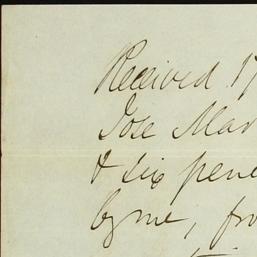 Received 17
Jose Mar
& six pene
by me, fro